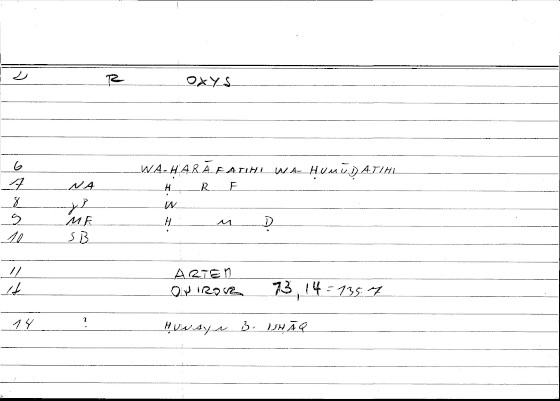 2 R OXYS
6 WA-ḤARĀFATIHI WA-ḤUMŪḌATIHI
7 NA Ḥ R F
8 W
9 MF Ḥ M Ḍ
10 SB
11 ARTEM
73, 14 = 135.7
14 ? ḤUNAYN B. ISḤĀQ